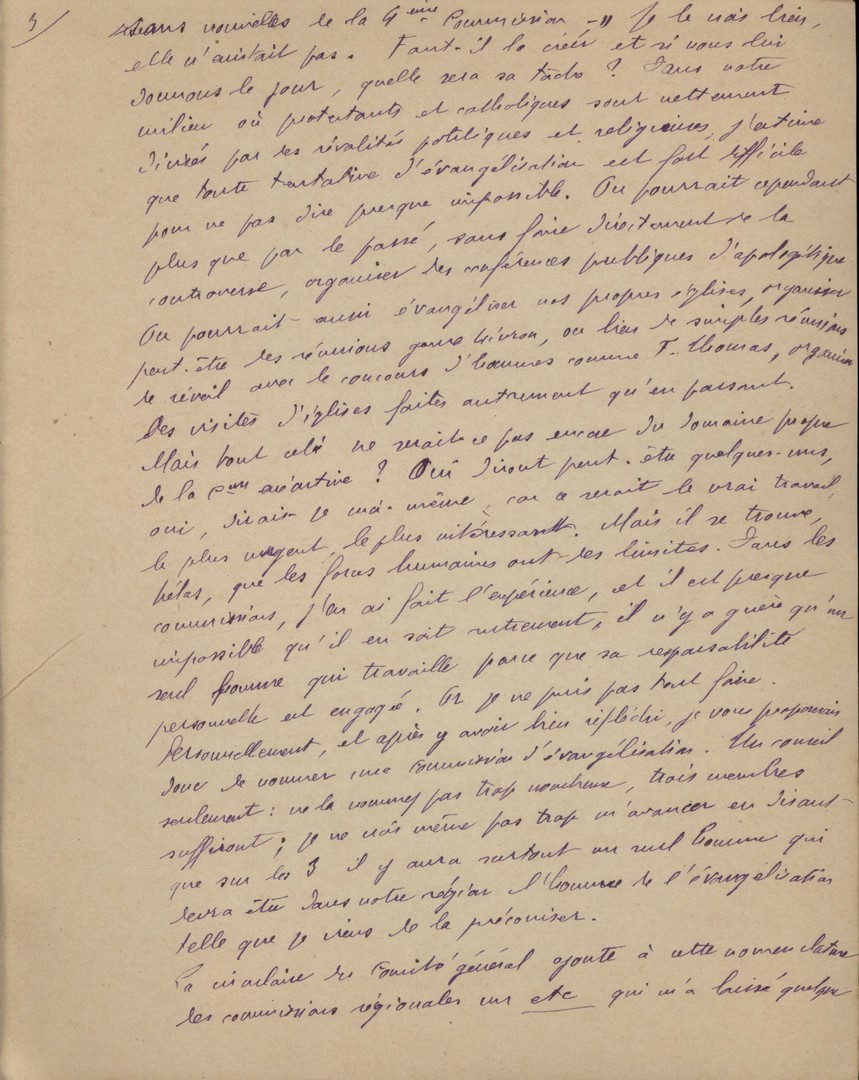 3/
Sans nouvelles de la 4ième Commission – " Je le crois bien,
elle n'existait pas. Faut-il la créér et si nous lui
donnons le jour, quelle sera sa tâche ? Dans notre
milieu où protestants et catholiques sont nettement
divisés par des rivalités politiques et religieuses, j'estime
que toute tentative d'évangélisation est fort difficile
pour ne pas dire presque impossible. On pourrait cependant
plus que par le passé, sans faire directement de la
controverse, organiser des conférences publiques d'apologétique
On pourrait aussi évangéliser nos propres églises, organiser
peut-être des réunions genre Livron, ou bien de simples réunions
de réveil avec le concours d'hommes comme F. Thomas, organiser
des visites d'églises faites autrement qu'en passant.
Mais tout cela ne serait-ce pas encore du domaine propre
de la con exécutive ? Oui diront peut-être quelques-uns,
oui, dirais-je moi-même car ce serait le vrai travail,
le plus urgent, le plus intéressant. Mais il se trouve,
hélas, que les forces humaines ont des limites. Dans les
commissions, j'en ai fait l'expérience, et il est presque
impossible qu'il en soit autrement, il n'y a guère qu'un
seul homme qui travaille parce que sa responsabilité
personnelle est engagée. Or je ne puis pas tout faire.
Personnellement, et après y avoir bien réfléchi, je vous proposerais
donc de nommer une commission d'évangélisation. Un conseil
seulement : ne la nommez pas trop nombreuse, trois membres
suffiront ; je ne crois même pas trop m'avancer en disant
que sur les 3 il y aura surtout un seul homme qui
devra être dans notre région l'homme de l'évangélisation
telle que je viens de la préconiser.
La circulaire du Comité général ajoute à cette nomenclature
des commissions régionales un etc qui m'a laissé quelque